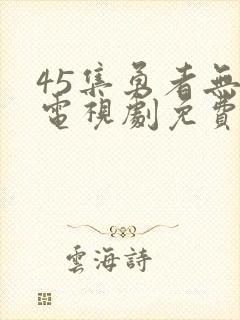 45集勇者無
電視劇免費
雲海詩